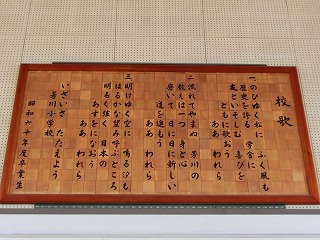 校歌
一 のびゆく松に ふく風も
歴史を誇る 学舎に
友といそしむ 喜びを
ともに歌わん
ああ われら
二 流れてやまぬ 芳川の
教えは一つ 身と心
磨いて 日に日に新しい
道を進もう
ああ われら
三 明けゆく空に 鳴る汐も
はるかな望み 呼ぶところ
明るく強く 日本の
あすをになおう
ああ われら
いざいざ たたえよう
芳川小学校
昭和六十年度卒業生